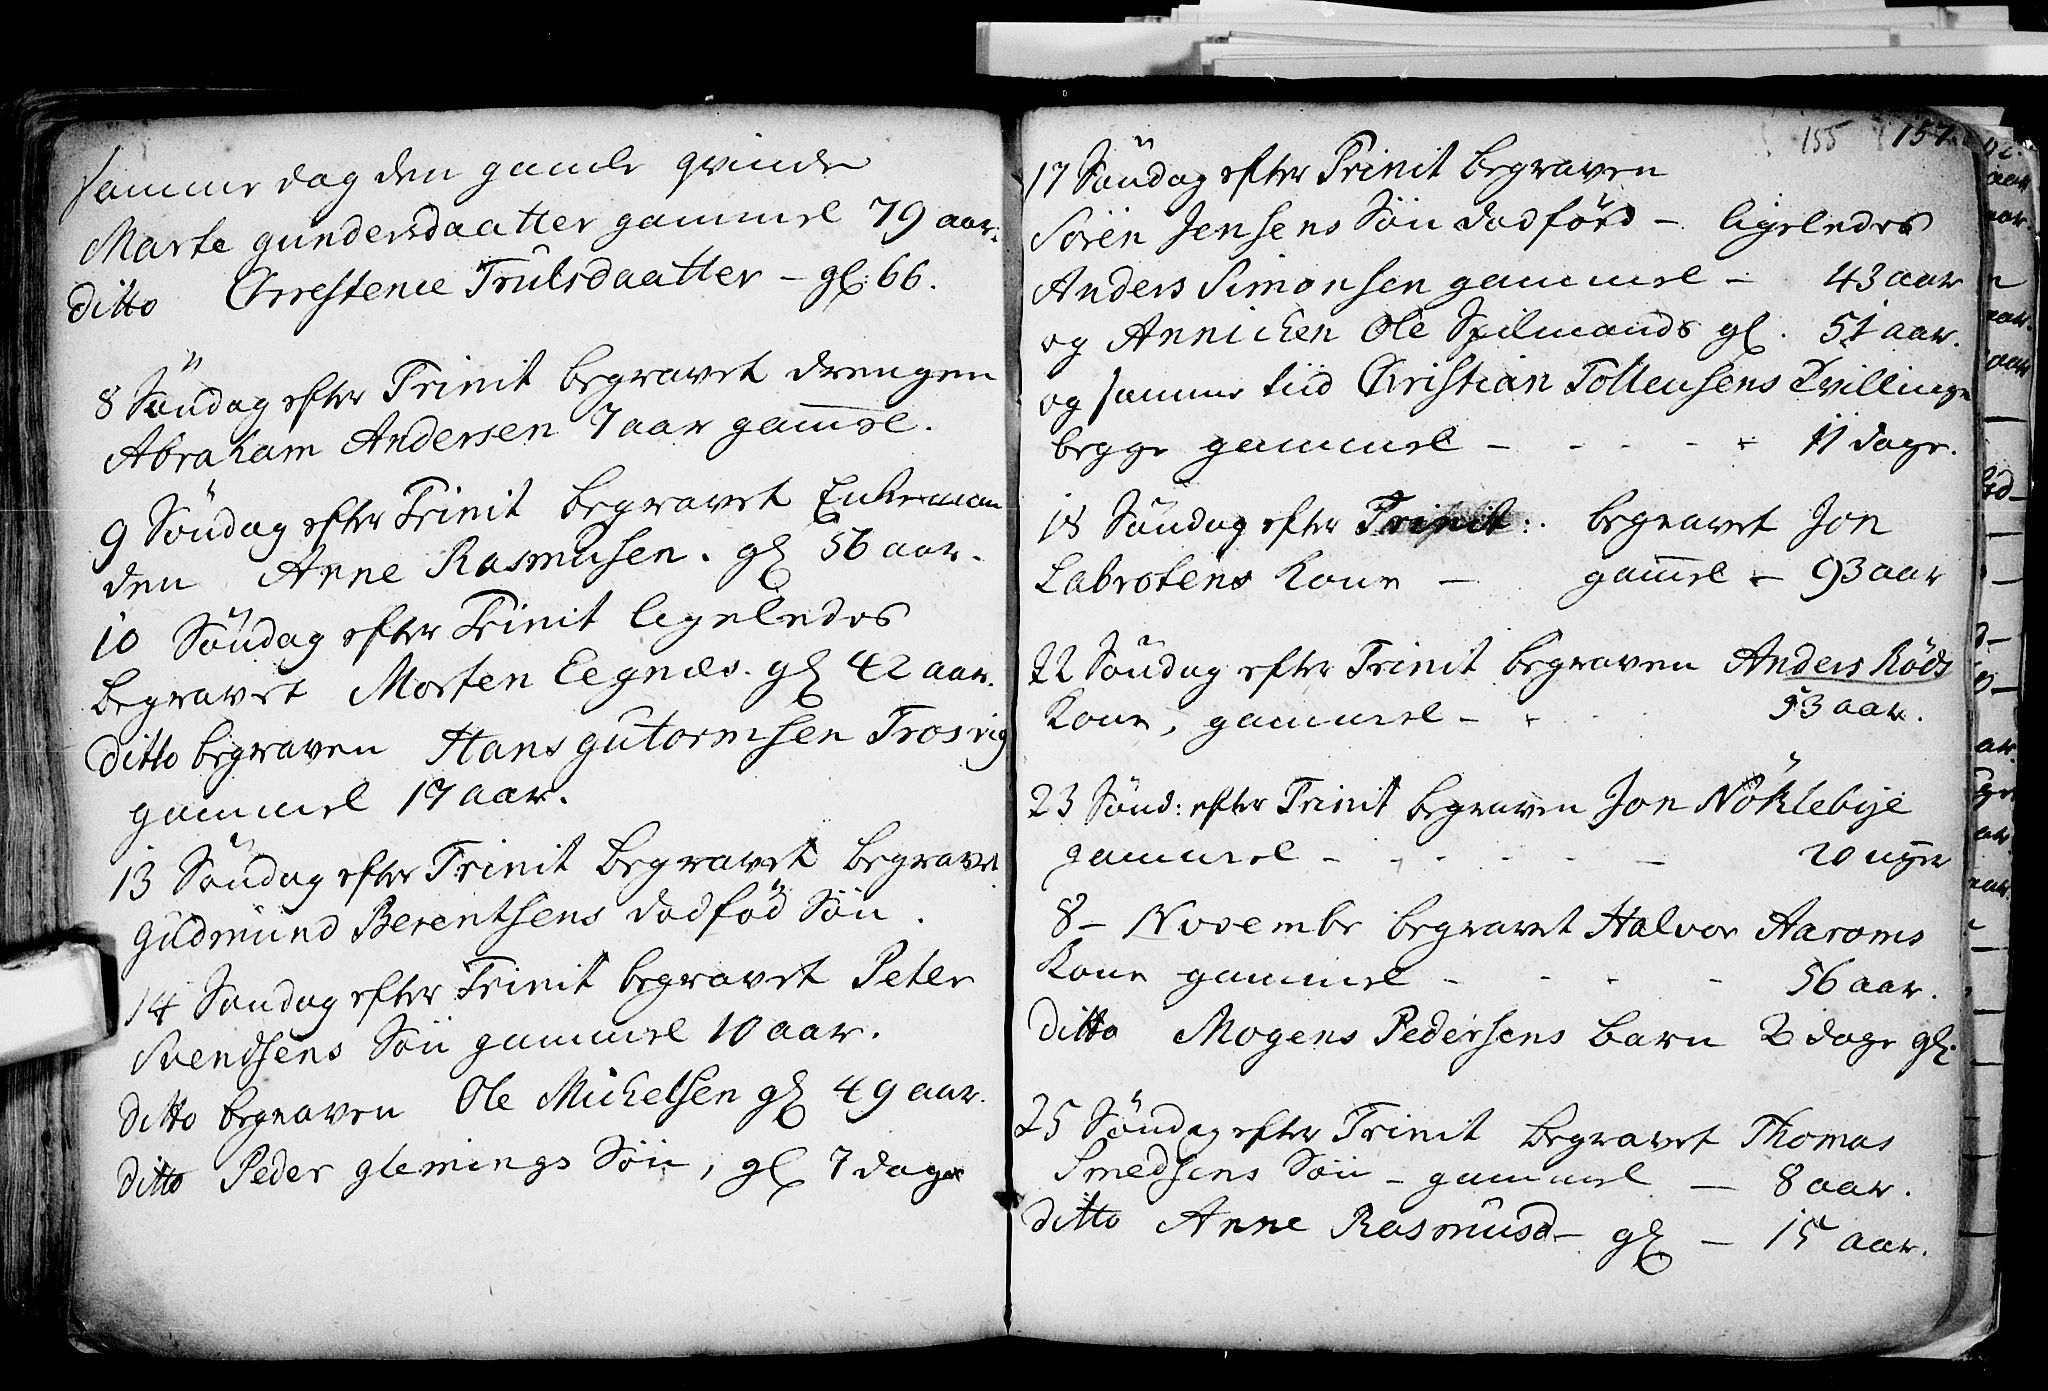 samme dag den gamle qvinde
Marte gundersdaatter gammel 79 aar.
ditto Chrestence Trulsdaatter - gl: 66.
8 Söndag efter Trinit begravet drengen
Abraham Andersen 7 aar gamel.
9 Söndag efter Trinit begravet Enkeman
den Anne Rasmusen. gl 56 aar.
10 Söndag efter Trinit ligeledes
begravet Morten Eegnæs. gl 42 aar.
ditto begraven Hans gutormsen Trosvig
gammel 17 aar.
13 Söndag efter Trinit begravet begravet
Gudmund Berentsens dodföd Sön.
14 Söndag efter Trinit begravet Peter
Svendsens Sön gammel 10 aar.
ditto begraven Ole Michelsen gl 49 aar.
ditto Peder glemings Sön, gl 7 dage
155 157
17 Söndag efter Trinit begraven
Sören Jensens Sön dodförd - ligeledes
Anders Simonsen gammel - 43 aar
og Annichen Ole Spilmands gl. 51 aar.
og samme tiid Christian Tollensens Tvillinge
begge gammel - 11 dage.
18 Söndag efter Trinit: begravet Jon
Labrotens Kone - gamel - 93 aar
22 Söndag efter Trinit begraven Anders Röds
Kone, gammel - 53 aar.
23 Sönd: efter Trinit begraven Jon Nöklebye
gammel - 20 uger
8 - Novembr begravet Halvor Aaroms
Kone gammel - 56 aar.
ditto Mogens Pedersens barn 2 dage gl.
25 Söndag efter Trinit begravet Thomas
Smedsens Sön - gammel - 8 aar.
ditto Anne Rasmusd - gl - 15 aar.